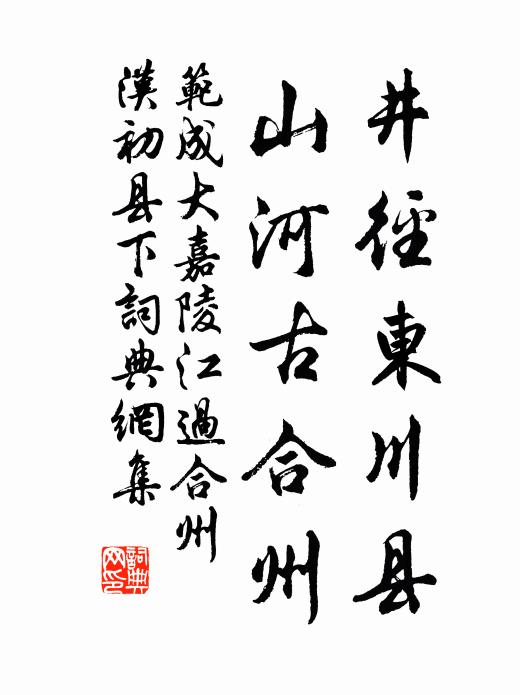 井徑東川县
山河古合州
範成大嘉陵江過合州
漢初县下詞典網集
詞典网印